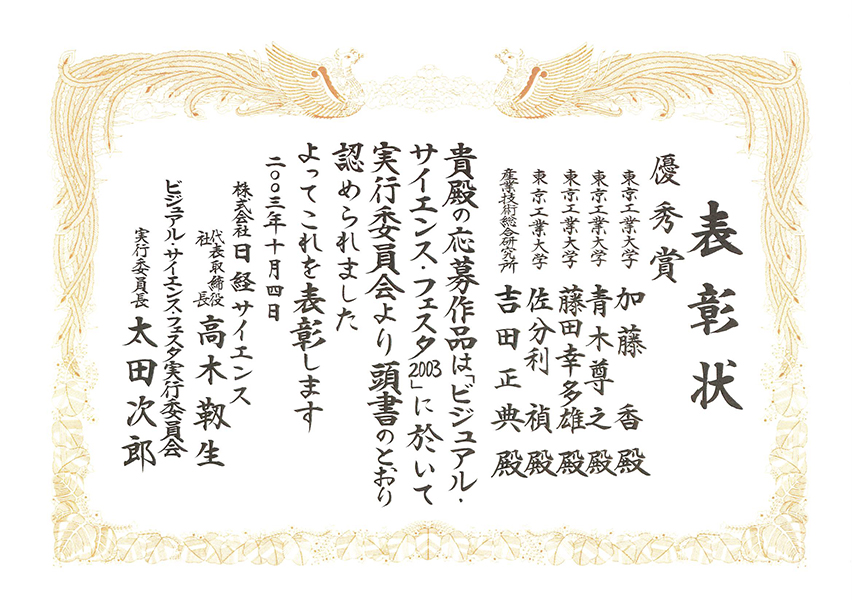 表彰状
優秀賞
東京工業大学 加藤 香 殿
東京工業大学 青木尊之 殿
東京工業大学 藤田幸多雄 殿
東京工業大学 佐分利 禎 殿
産業技術総合研究所 吉田正典 殿
貴殿の応募作品は「ビジュアル・
サイエンス・フェスタ2003」に於いて
実行委員会より頭書のとおり
認められました
よってこれを表彰します
二〇〇三年十月四日
株式会社 日経サイエンス
代表取締役社長 高木靱生
ビジュアル・サイエンス・フェスタ実行委員会
実行委員長 太田次郎